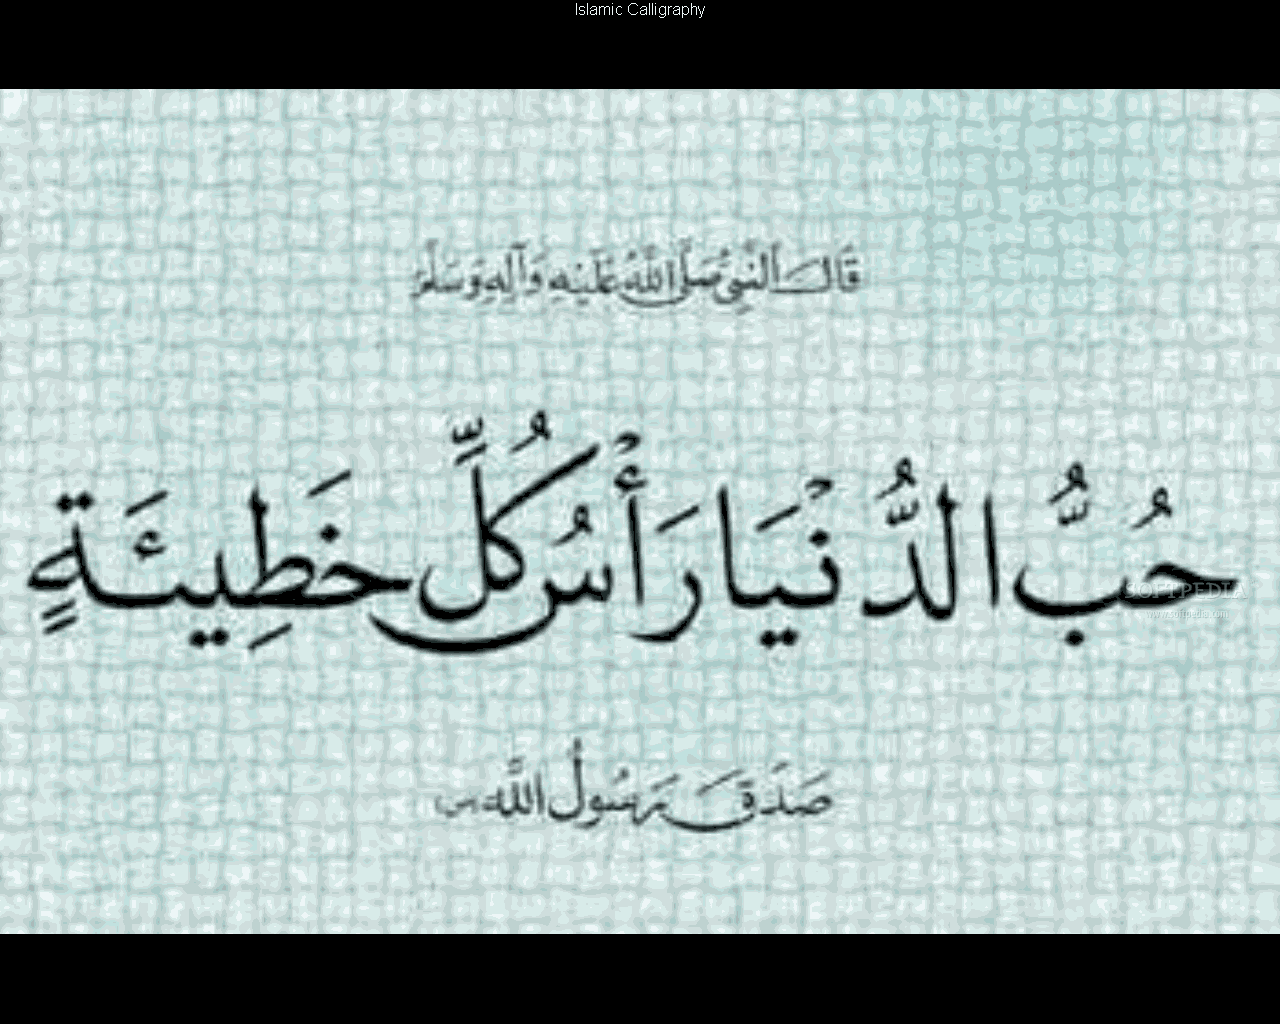 Islamic Calligraphy
قَالَ ألنَّبِيُّ صَلَّى اللَّهُ عَلَيْهِ وَآلِهِ وَسَلَّمْ
حُبُّ الدُّنْيَا رَأْسُ كُلِّ خَطِيئَةٍ
SOFTPEDIA
www.softpedia.com
صَدَقَ رَسُولُ اللَّه